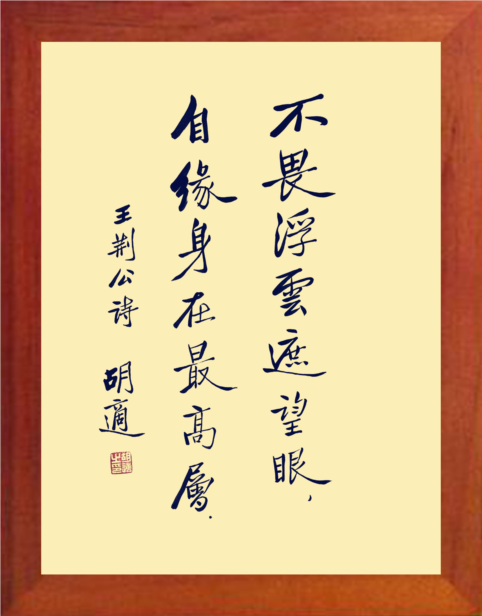 不畏浮雲遮望眼，
自缘身在最高層．
王荆公诗 胡適